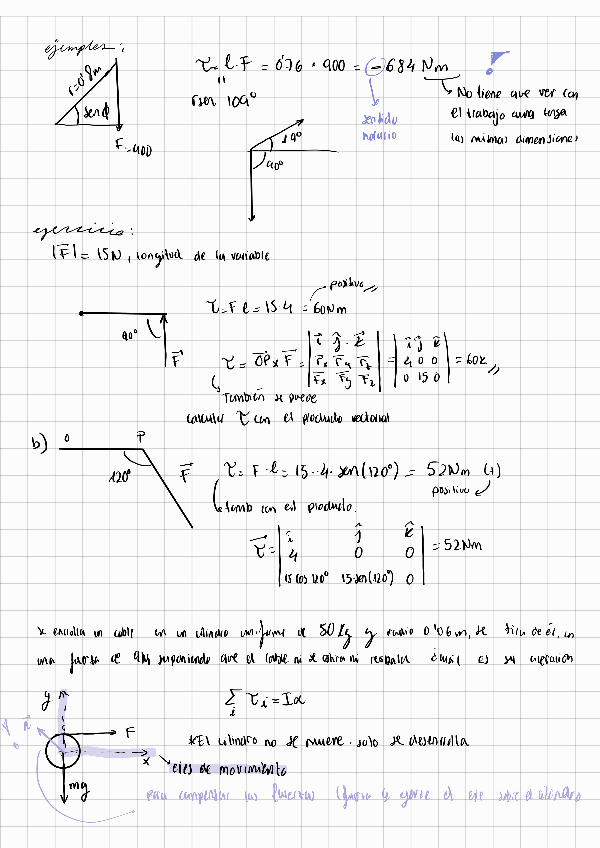 ejemplos:
r=0'8m
senϕ
F=900
τ= l.F = 0'76 · 900 = -684 Nm
"
rsen 109°
sentido
horario
No tiene que ver con
el trabajo aunq tenga
las mismas dimensiones
19°
90°
ejercicio:
|F⃗| = 15N, longitud de la variable
positivo
τ=F l = 15 4 = 60Nm
90°
F⃗
τ = OP⃗ x F⃗ = | i⃗ ĵ k⃗ | = | i ĵ k̂ | = 60k
rx ry rz 4 0 0
Fx Fy Fz 0 15 0
También se puede
calcular τ con el producto vectorial
b) O P
120°
F⃗
τ = F·l = 15·4·sen(120°) = 52Nm (+)
positivo
tamb con el producto.
τ⃗ = | i ĵ k̂ | = 52Nm
4 0 0
15 cos 120° 15·sen(120°) 0
se enrolla un cable en un cilindro uniforme de 50 kg y radio 0'06m, se tira de él, con
una fuerza de 9N, suponiendo que el cable ni se estira ni resbala cual es su aceleración
y
F
x
mg
∑ τi = Iα
i
*El cilindro no se mueve. solo se desenrolla
ejes de movimiento
para compensar las fuerzas (fuerza q ejerce el eje sobre el cilindro